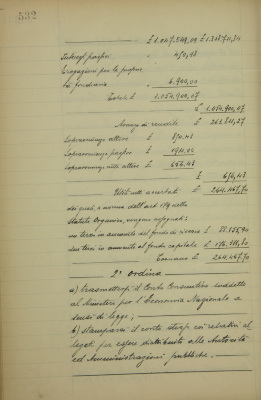 332
£ 1.047.549,09 £ 1.318.711,34
Interessi passivi " 450,98
Erogazioni per la propa-
ganda " 6.900,00
Totale £ 1.054.900,07
£ 1.054.900,07
Avanzo di rendite £ 263.811,27
Sopravvenienze attive £
Sopravvenienze passive £
Sopravvenienze nette attive £ 656,43
£ 656,43
Utili netti accertati £ 264.467,70
dei quali, a norma dell'art. dello
Statuto Organico, vengono assegnati:
un terzo in aumento del fondo di riserva £ 88.155,90
due terzi in aumento al fondo capitale £ 176.311,80
Tornano £ 264.467,70
2° ordina
a) trasmettersi il Conto Consuntivo suddetto
al Ministero per l'Economia Nazionale a
sensi di legge;
b) stamparsi il conto stesso coi relativi al-
legati per essere distribuito alle Autorità
ed Amministrazioni pubbliche.